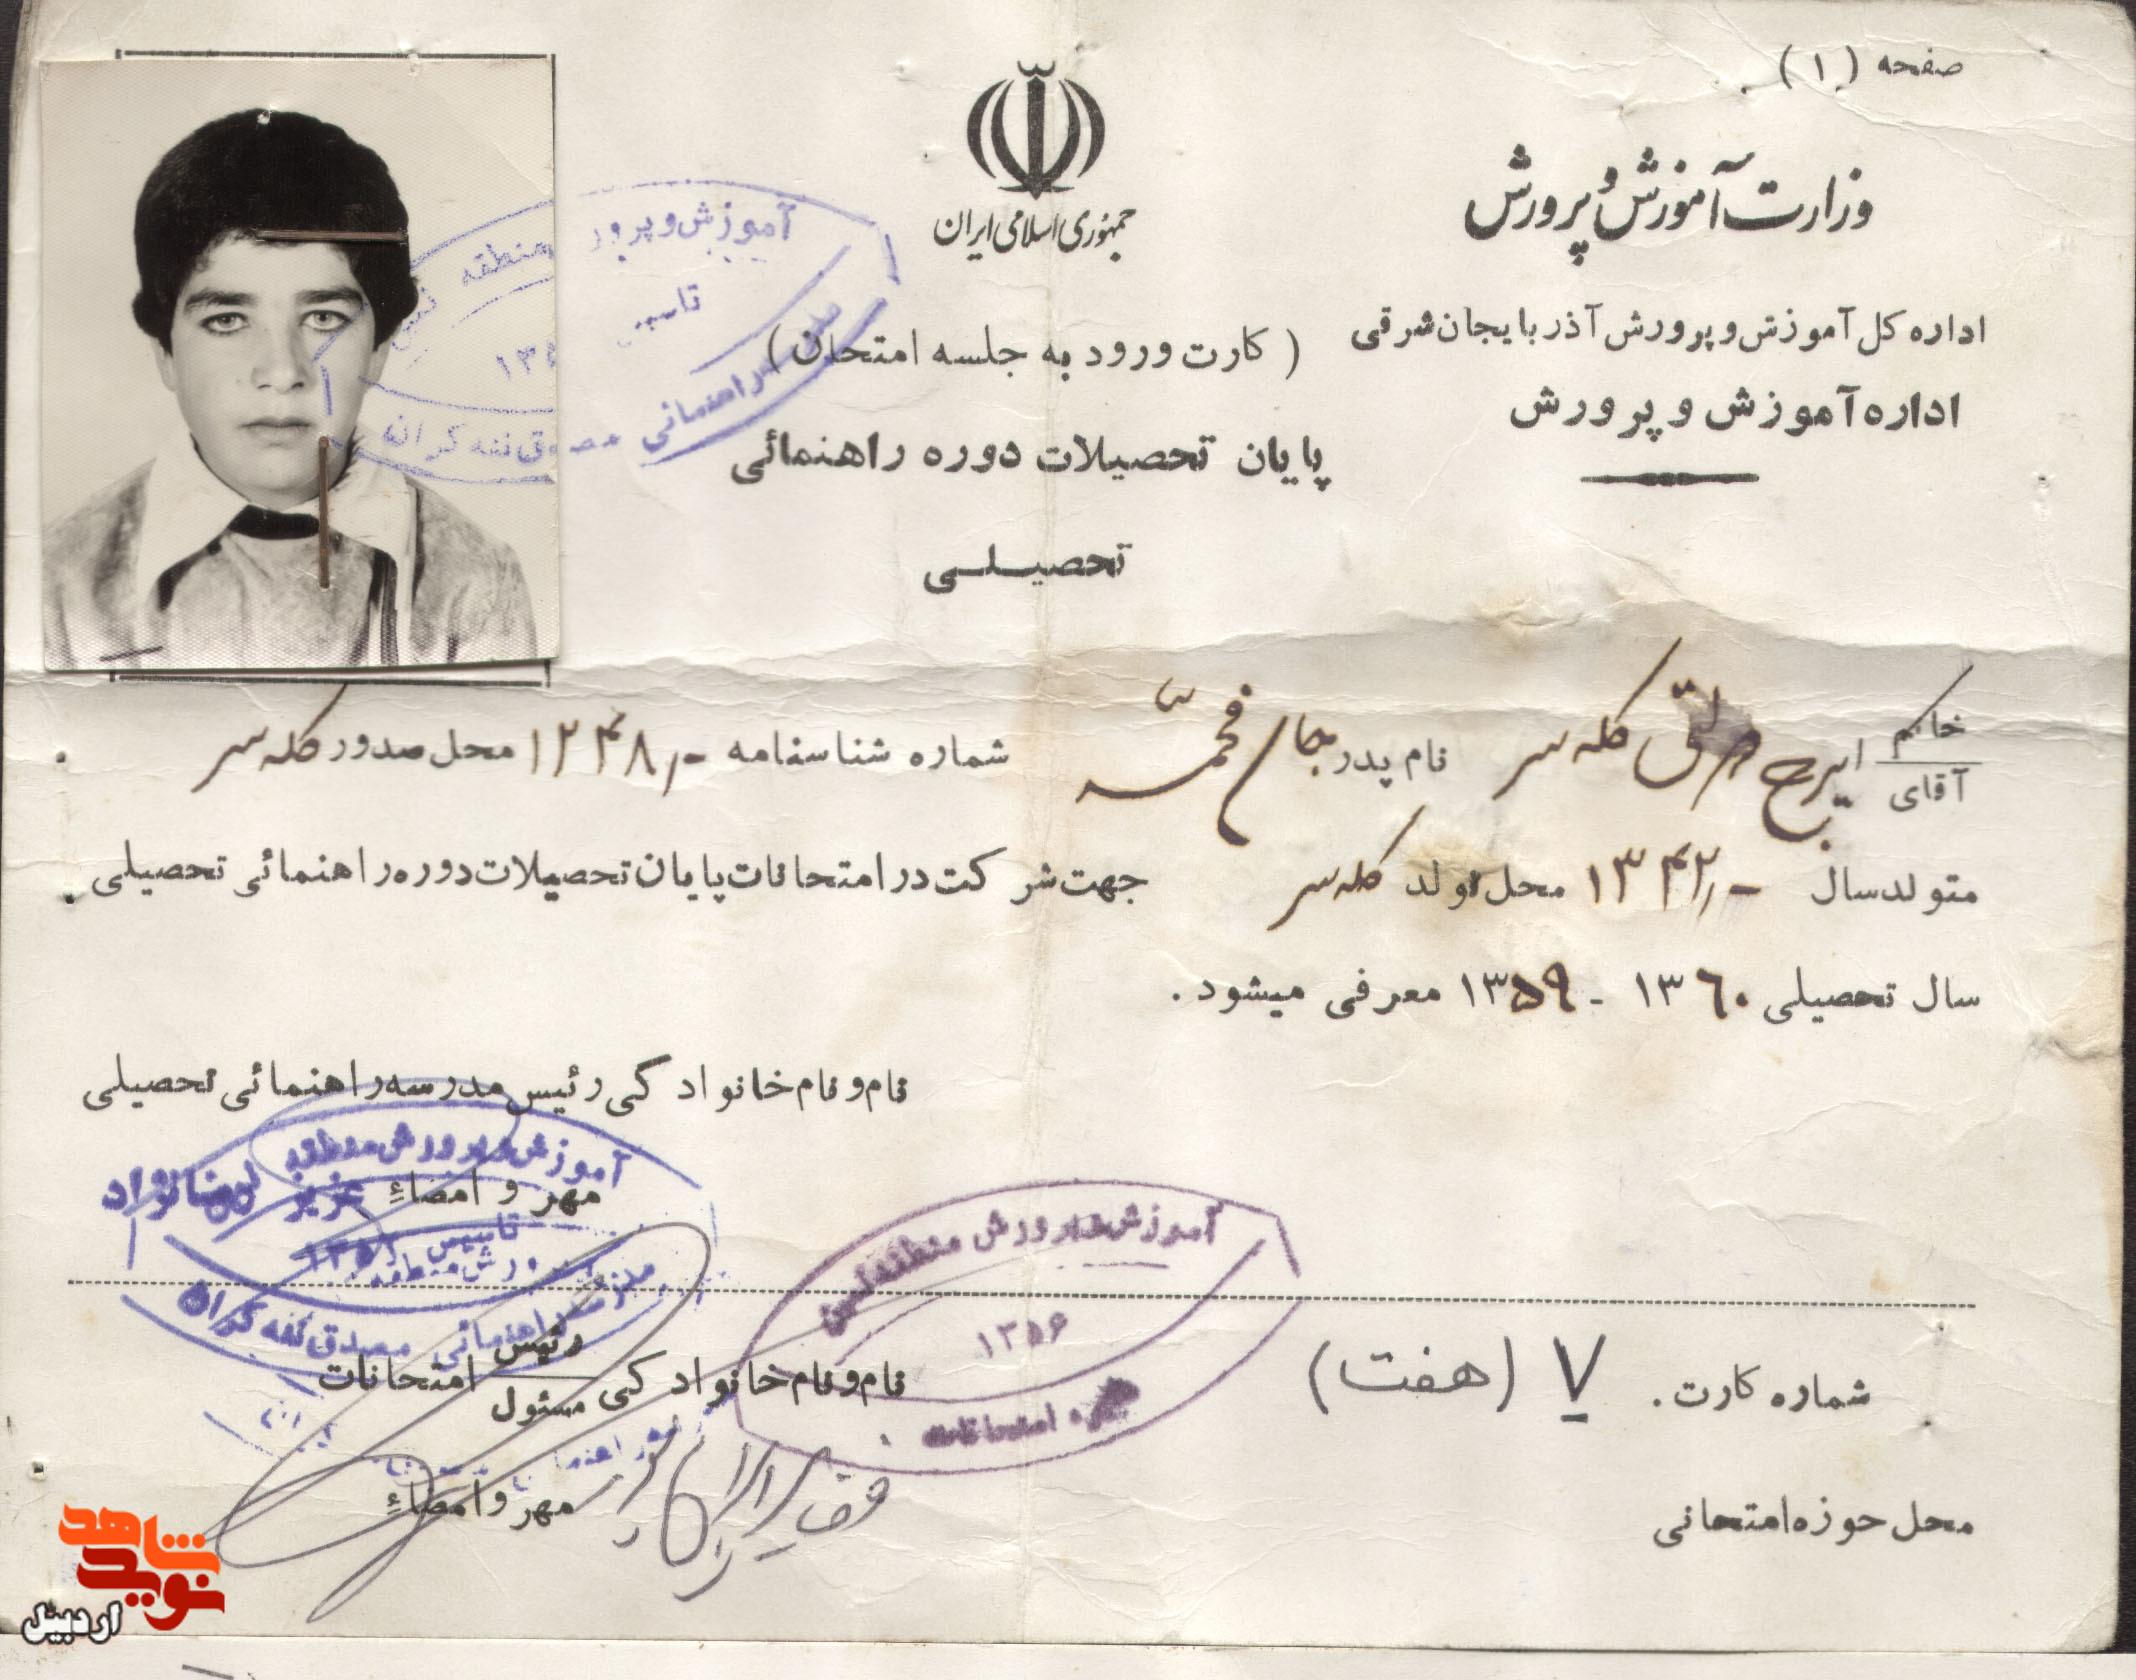 صفحه (۱)
جمهوری اسلامی ایران
وزارت آموزش و پرورش
اداره کل آموزش و پرورش آذربایجان شرقی
اداره آموزش و پرورش
(کارت ورود به جلسه امتحان)
پایان تحصیلات دوره راهنمائی
تحصیلی
آموزش و پرور منطقه
تاسیس
راهنمائی مصدق ننه کران
خانم
آقای
ایرج کله سر نام پدر جان محمد شماره شناسنامه ۱۲۴۸/- محل صدور کله سر
متولد سال ۱۳۴۲/- محل تولد کله سر جهت شرکت در امتحانات پایان تحصیلات دوره راهنمائی تحصیلی
سال تحصیلی ۱۳۶۰ - ۱۳۵۹ معرفی میشود.
نام و نام خانوادگی رئیس مدرسه راهنمائی تحصیلی
آموزش و پرورش منطقه
مهر و امضاءِ عزیز
تاسیس
مدرسه راهنمائی مصدق ننه کران
آموزش و پرورش منطقه
۱۳۵۶
امتحانات
شماره کارت. ۷ (هفت)
نام و نام خانوادگی رئیس امتحانات
مسئول
محل حوزه امتحانی
مهر و امضاءِ
نوید شاهد
اردبیل